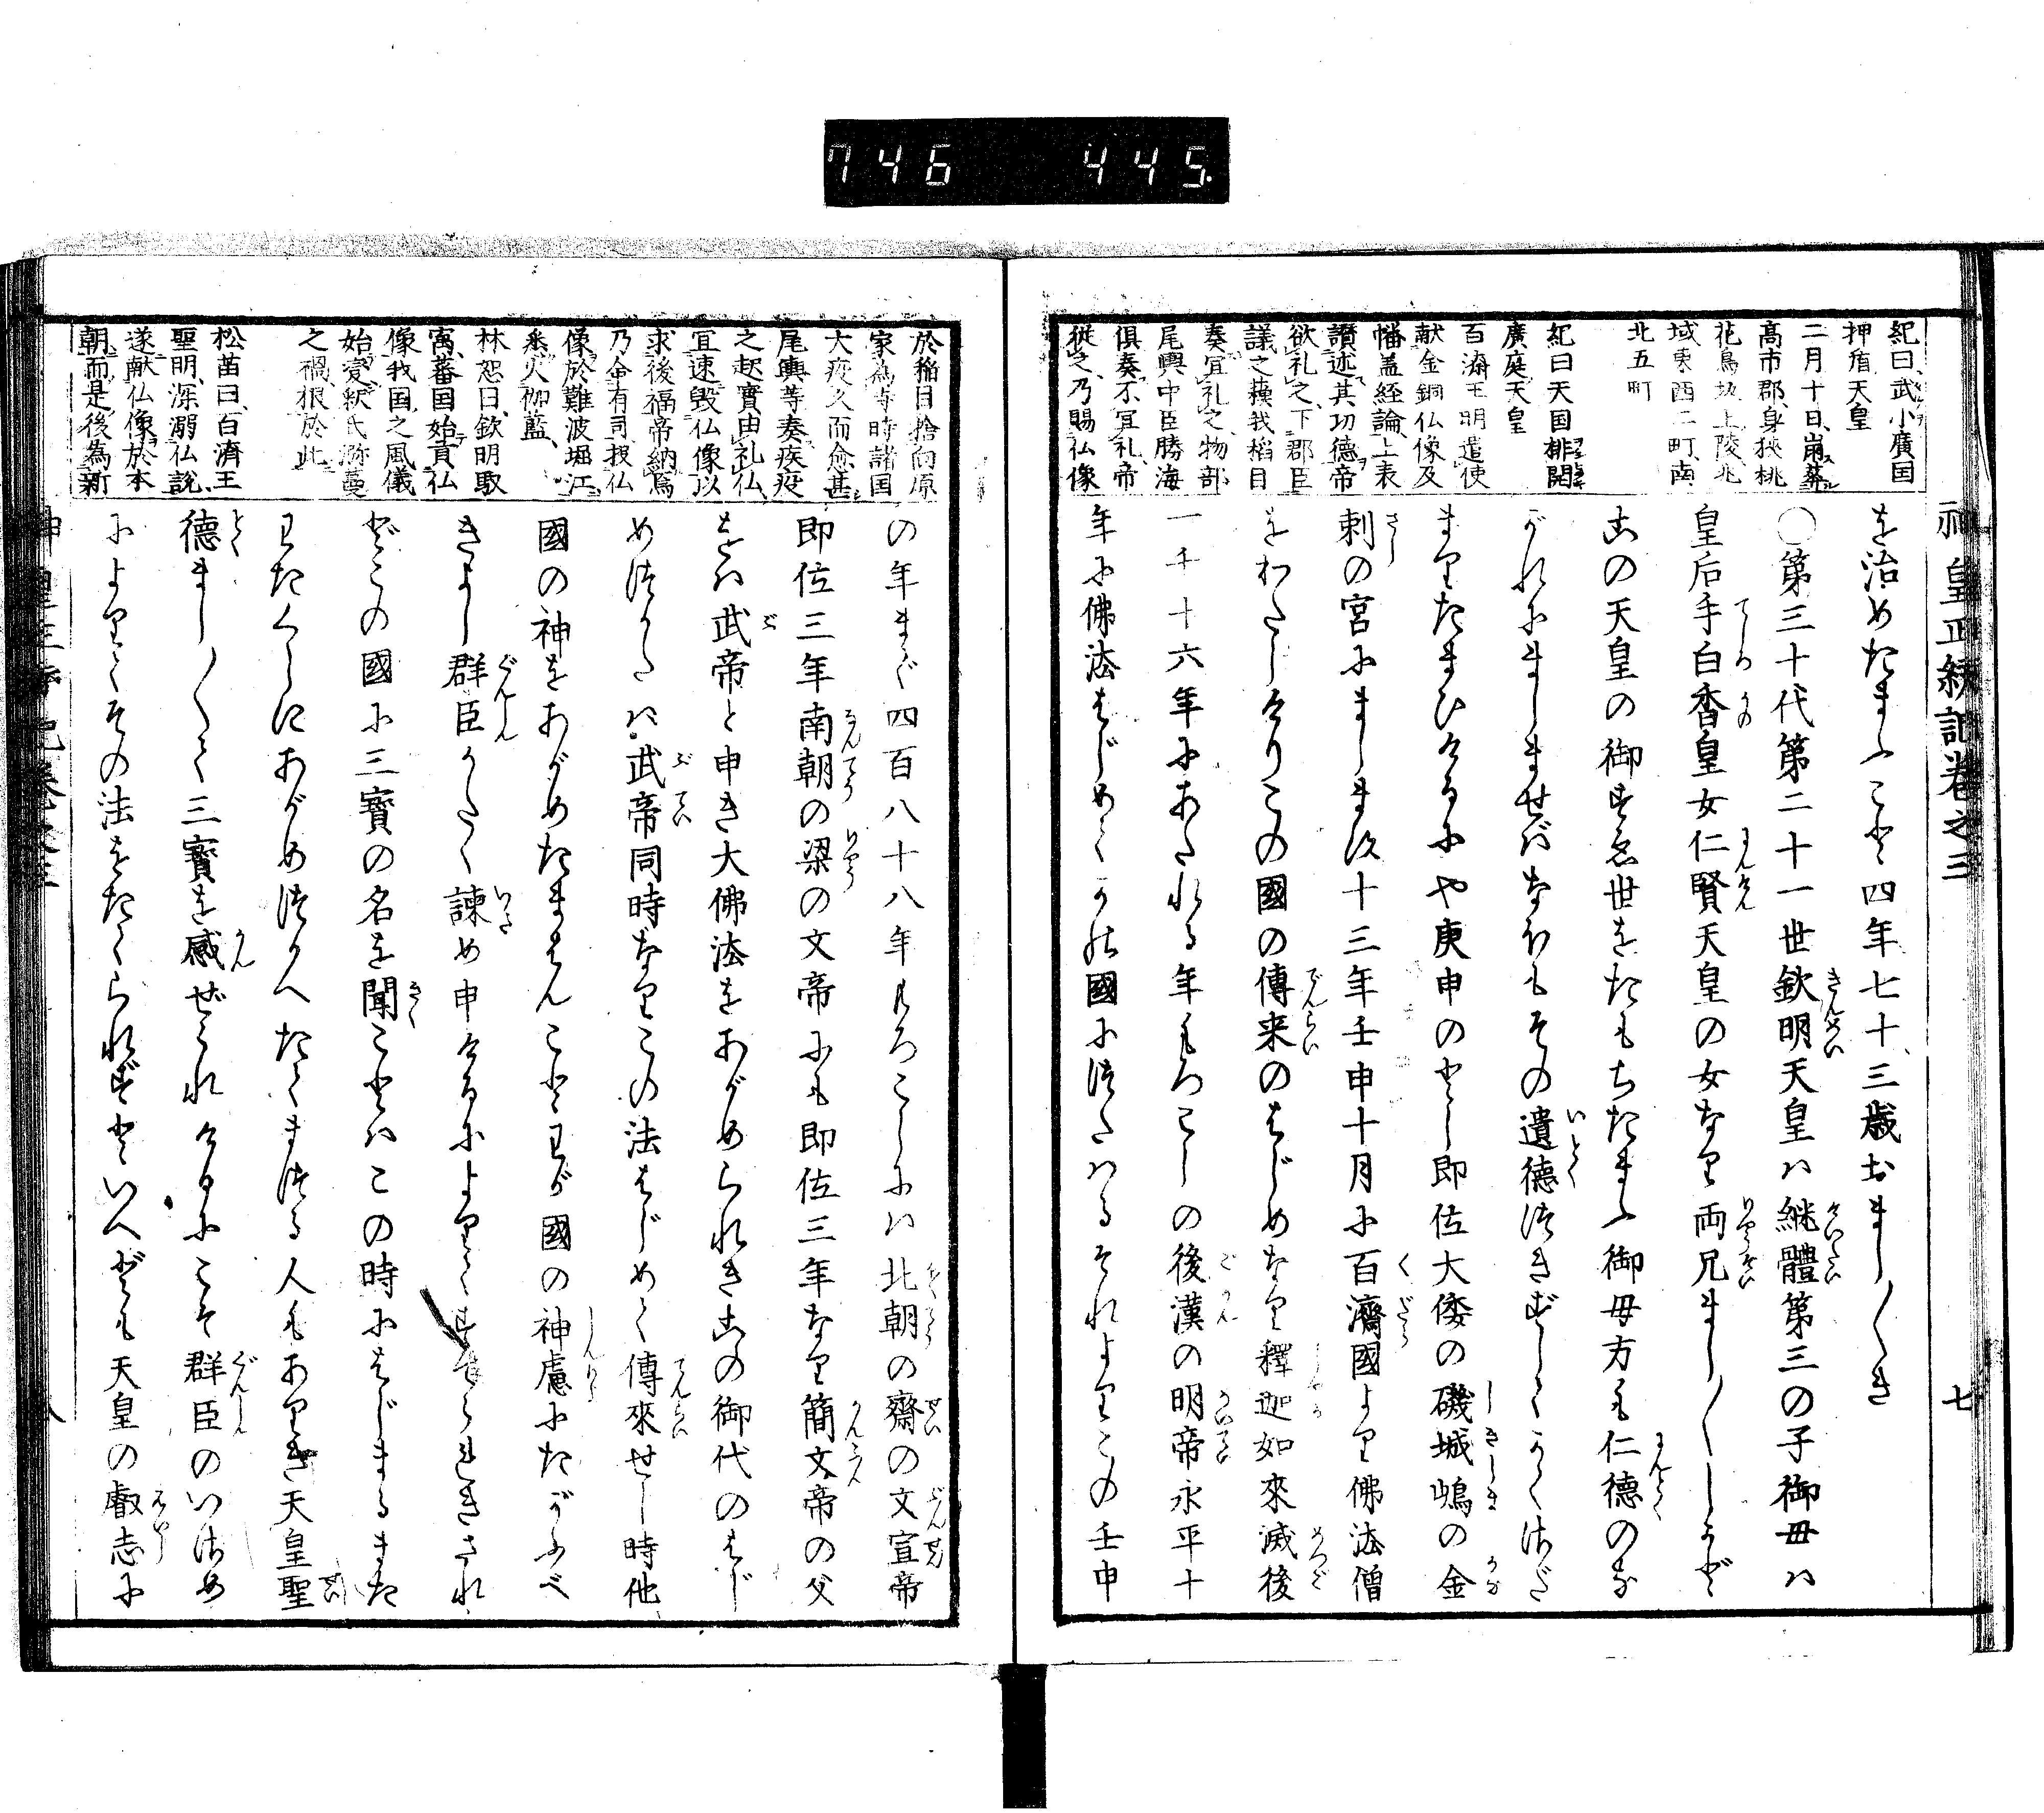 746 445
神皇正統記巻之三 七
紀曰、武小廣国
押盾天皇
二月十日、崩葬
高市郡身狭桃
花鳥坂上陵兆
域東西二町、南
北五町
紀曰天国排開
廣庭天皇
百濟王明遣使
献金銅仏像及
幡蓋経論、上表
讃述其功徳帝
欲礼之、下郡臣
議之、蘓我稻目
奏宜礼之、物部
尾興中臣勝海
俱奏不宜礼、帝
従之、乃賜仏像
を治めたまふこと四年七十三歳おまし〱き
〇第三十代第二十一世欽明天皇ハ継體第三の子御母ハ
皇后手白香皇女仁賢天皇の女なり両兄まし〱しかど
この天皇の御すゑ世をたもちたまふ御母方も仁德のな
がれにましませばなほもその遺德つきずしてかくさだ
まりたまひけるにや庚申のとし即位大倭の磯城嶋の金
刺の宮にまします十三年壬申十月に百濟國より佛法僧
をわたしけりこの國の傳来のはじめなり釋迦如來滅後
一千十六年にあたれる年もろこしの後漢の明帝永平十
年に佛法はじめてかの國につたハるそれよりこの壬申
於稲目捨向原
家為寺時諸国
大疫久而愈甚
尾輿等奏疾疫
之起實由礼仏
宜速毀仏像以
求後福帝納焉
乃命有司投仏
像於難波堀江
悉火伽藍、
林恕曰、欽明取
寓蕃国始貢仏
像我国之風儀
始変釈氏弥蔓
之禍根於此
松苗曰、百濟王
聖明、深溺仏説、
遂献仏像於本
朝而是後為新
の年まで四百八十八年もろこしにハ北朝の齋の文宣帝
即位三年南朝の梁の文帝にも即位三年なり簡文帝の父
をバ武帝と申き大佛法をあがめられきこの御代のはじ
めつかたハ武帝同時なりこの法はじめて傳來せし時他
國の神をあがめたまはんことわが國の神慮にたがふべ
きよし群臣かたく諫め申けるによりてすてられきされ
どこの國に三寳の名を聞ことハこの時にはじまるまた
わたくしにあがめつかへたてまつる人もありき天皇聖
德まし〱て三寳を感ぜられけるにこそ群臣のいさめ
によりてその法をたてられずといへども天皇の叡志に
八